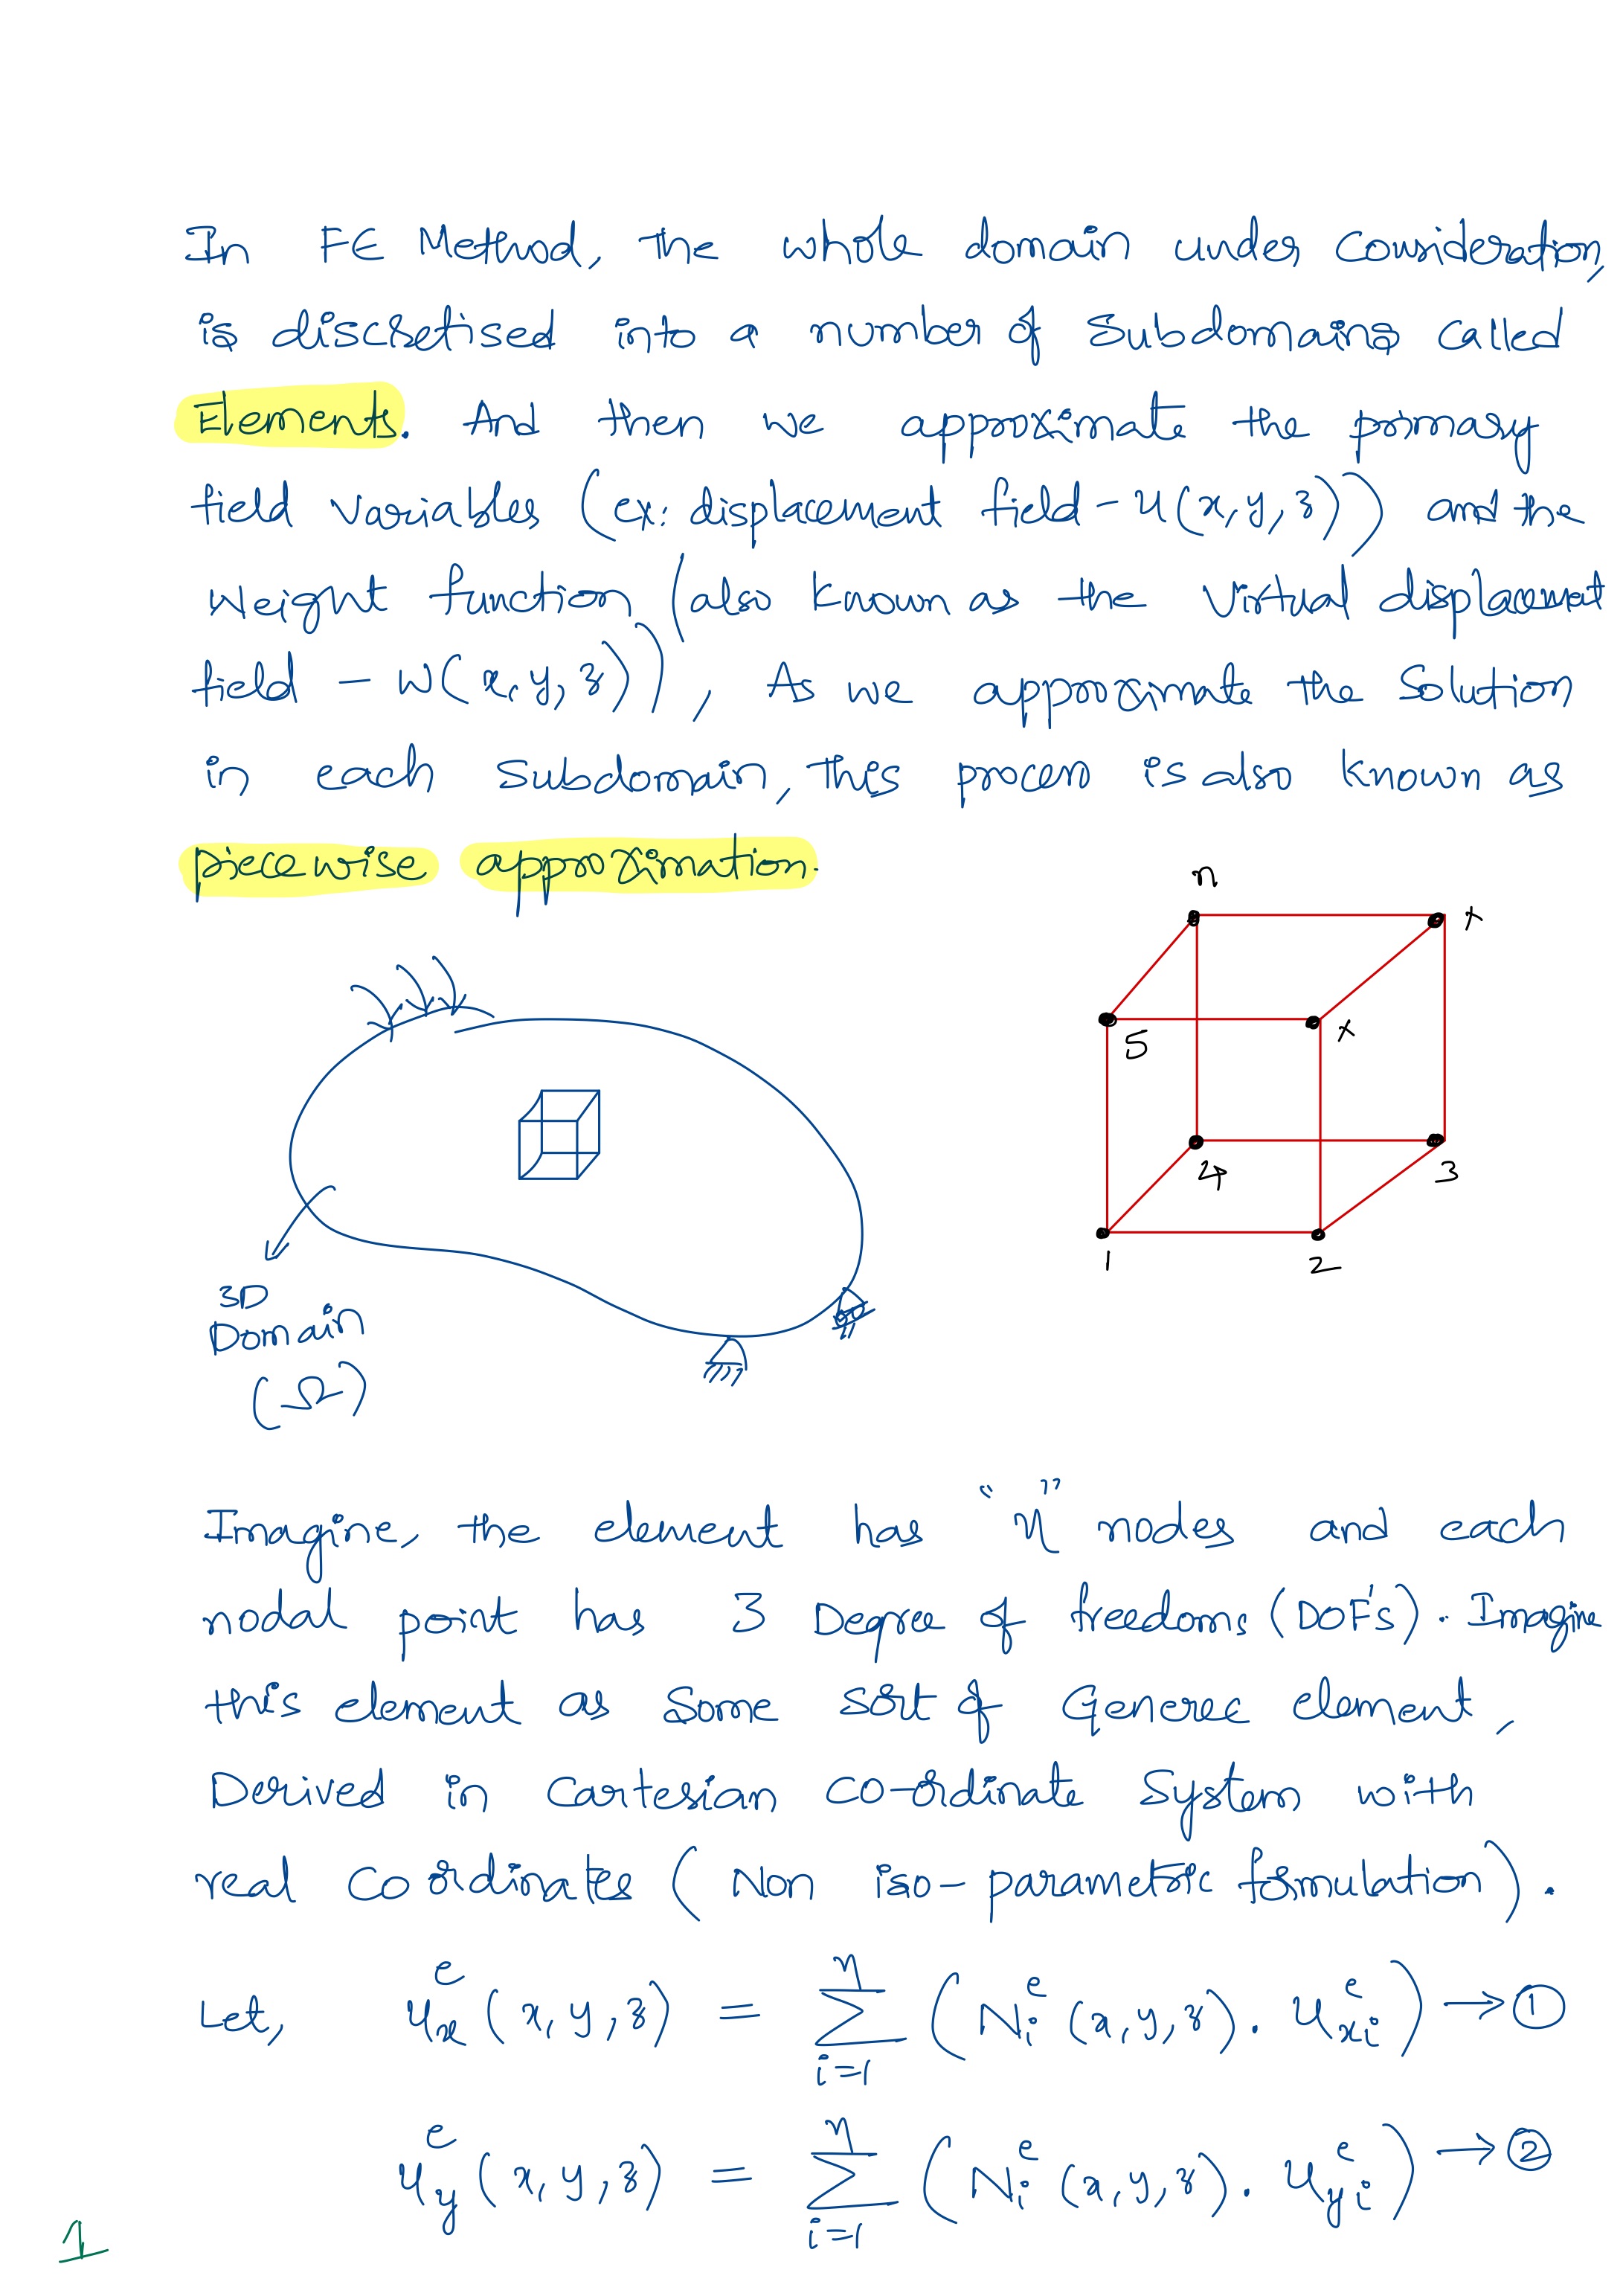 In FE Method, the whole domain under consideration,
is discretised into a number of subdomains called
Elements. And then we approximate the primary
field variables (ex: displacement field - u(x,y,z)) and the
Weight function (also known as the Virtual displacement
field - w(x,y,z)), As we approximate the solution
in each subdomain, this process is also known as
piecewise approximation.
n
x
5
x
4
3
1
2
3D
Domain
(Ω)
Imagine, the element has "n" nodes and each
nodal point has 3 Degree of freedoms (DOF's). Imagine
this element as some sort of Generec element,
Derived in Cartesian co-ordinate System with
real coordinates (Non iso-parametric formulation).
Let, u_x^e (x,y,z) = Σ_{i=1}^{n} (N_i^e (x,y,z) . u_{xi}^e) → ①
u_y^e (x,y,z) = Σ_{i=1}^{n} (N_i^e (x,y,z) . u_{yi}^e) → ②
1